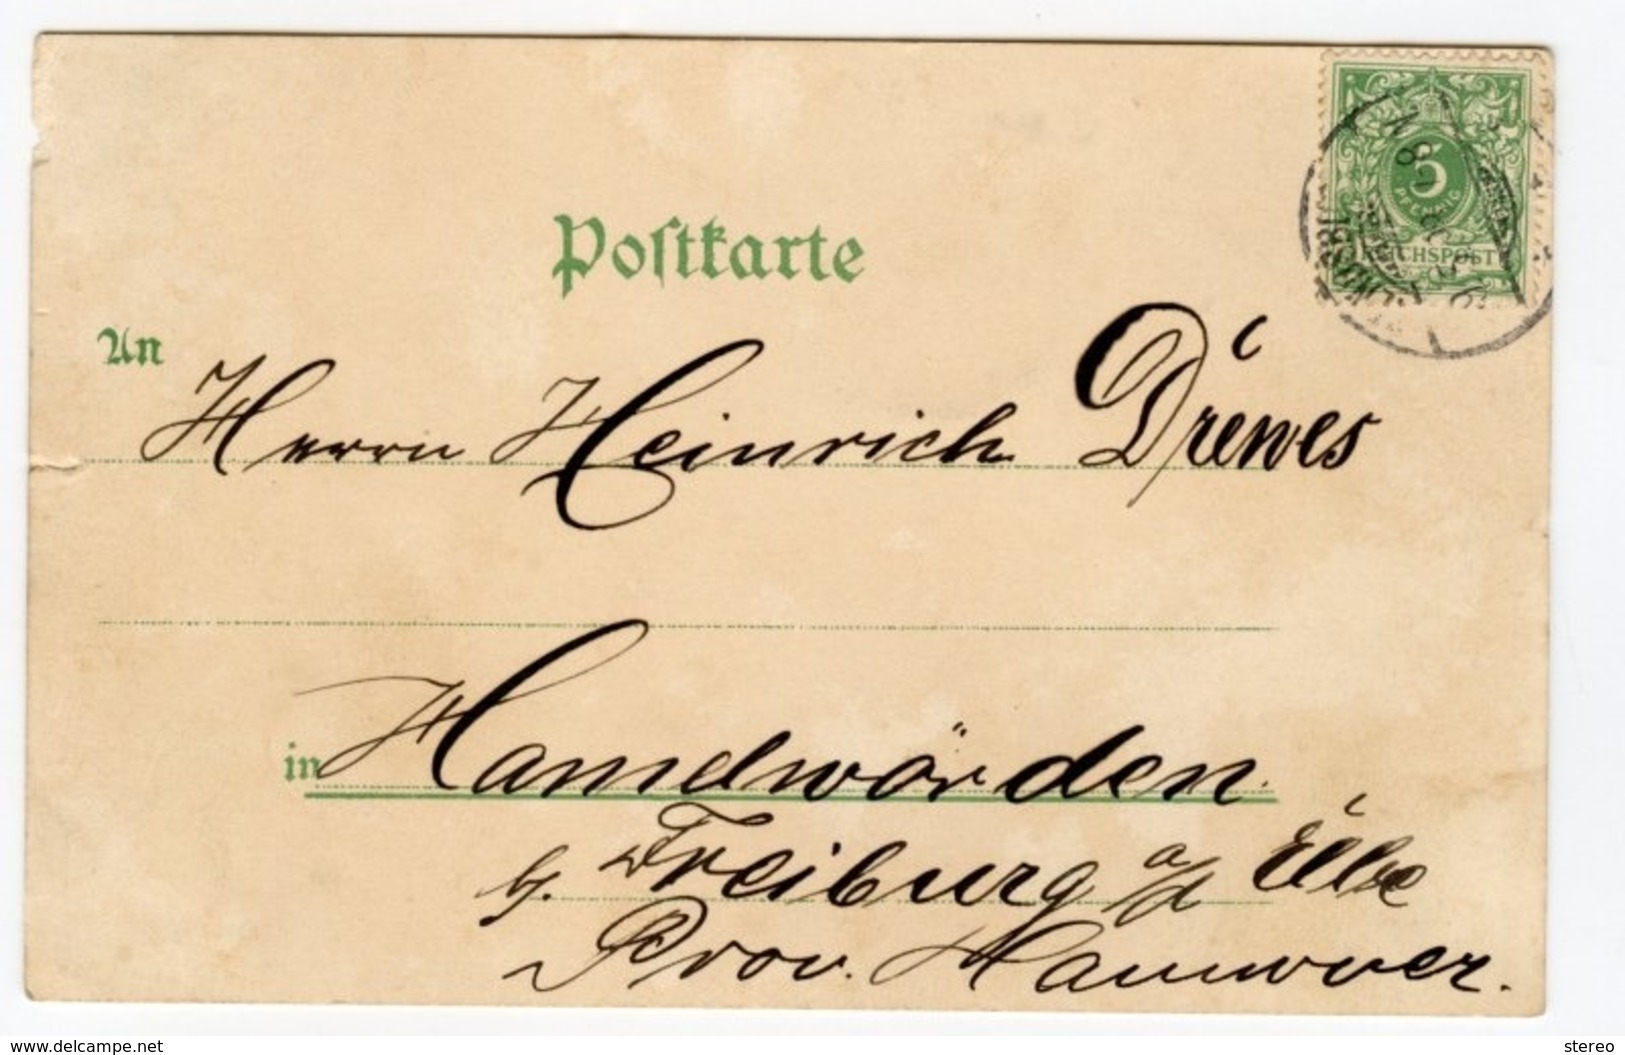 Postkarte
5
PFENNIG
REICHSPOST
An
Herrn Heinrich Drewes
in Hamelwörden
b. Freiburg a/d Elbe
Prov. Hannover.
www.delcampe.net
stereo